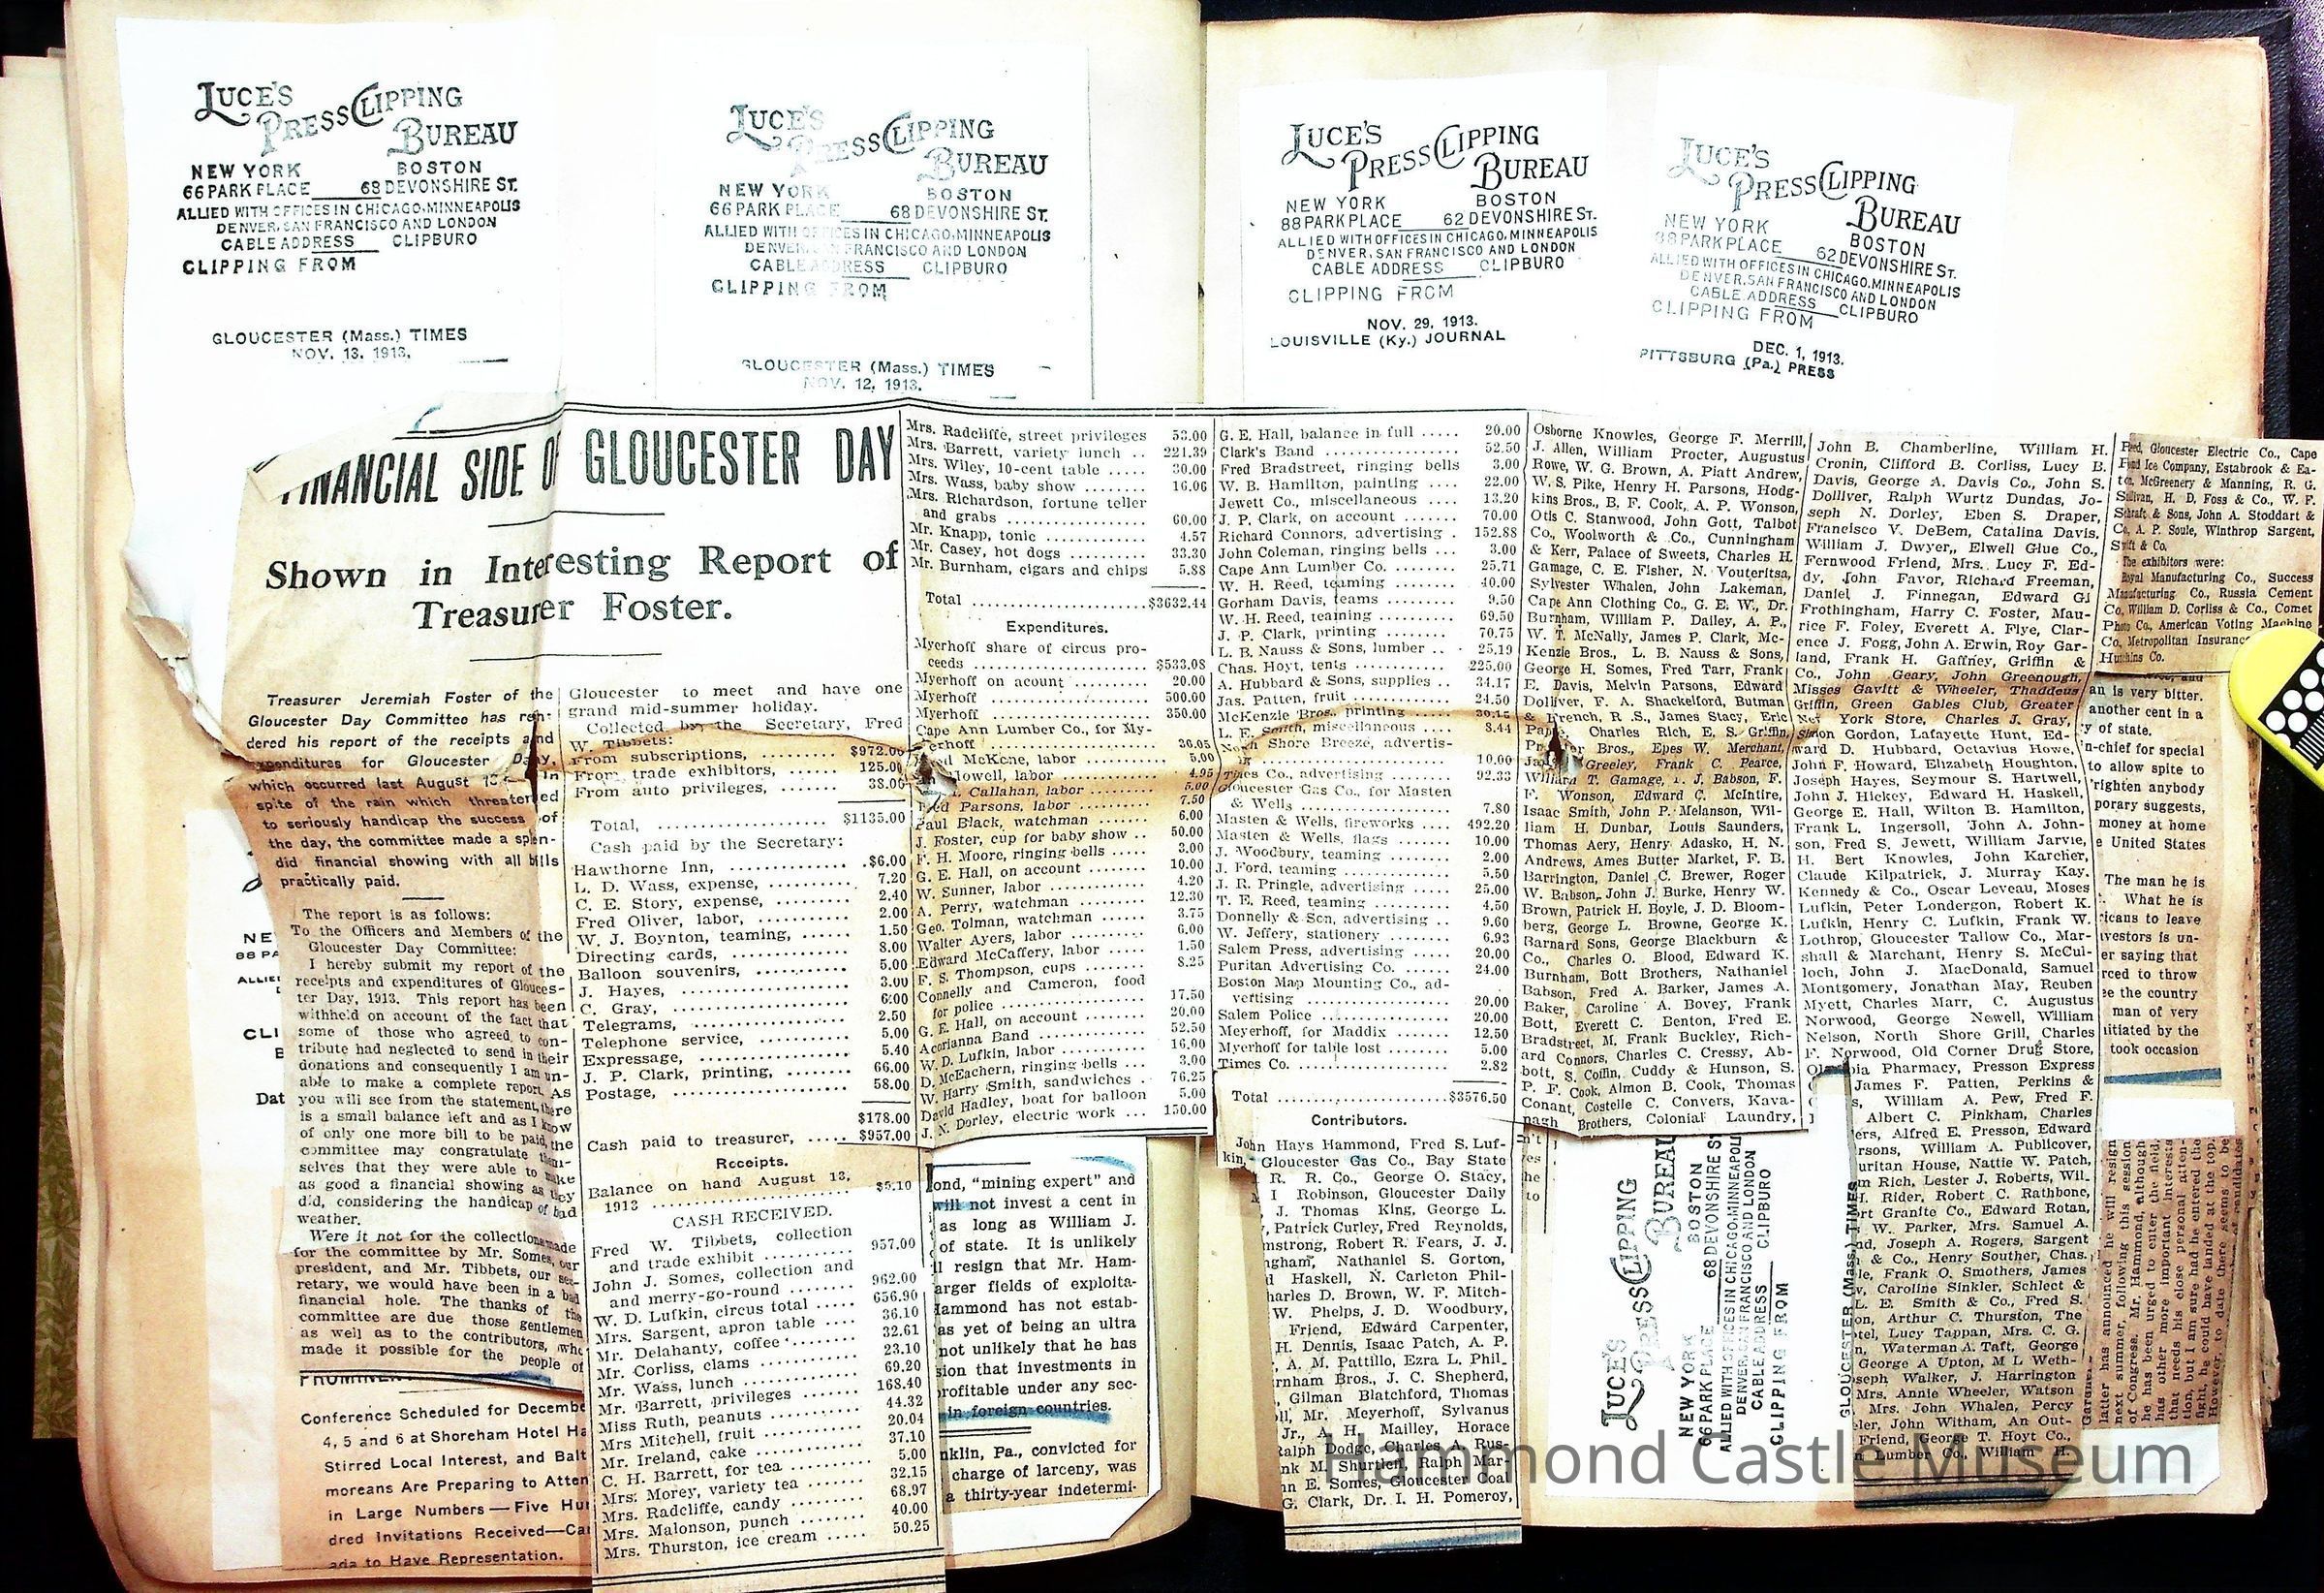 LUCE'S
PRESS CLIPPING
BUREAU
NEW YORK BOSTON
66 PARK PLACE 68 DEVONSHIRE ST.
ALLIED WITH OFFICES IN CHICAGO, MINNEAPOLIS
DENVER, SAN FRANCISCO AND LONDON
CABLE ADDRESS CLIPBURO
CLIPPING FROM
GLOUCESTER (Mass.) TIMES
NOV. 13, 1913.
LUCE'S
PRESS CLIPPING
BUREAU
NEW YORK BOSTON
66 PARK PLACE 68 DEVONSHIRE ST.
ALLIED WITH OFFICES IN CHICAGO, MINNEAPOLIS
DENVER, SAN FRANCISCO AND LONDON
CABLE ADDRESS CLIPBURO
CLIPPING FROM
GLOUCESTER (Mass.) TIMES
NOV. 12, 1913.
LUCE'S
PRESS CLIPPING
BUREAU
NEW YORK BOSTON
88 PARK PLACE 62 DEVONSHIRE ST.
ALLIED WITH OFFICES IN CHICAGO, MINNEAPOLIS
DENVER, SAN FRANCISCO AND LONDON
CABLE ADDRESS CLIPBURO
CLIPPING FROM
NOV. 29, 1913.
LOUISVILLE (Ky.) JOURNAL
LUCE'S
PRESS CLIPPING
BUREAU
NEW YORK BOSTON
88 PARK PLACE 62 DEVONSHIRE ST.
ALLIED WITH OFFICES IN CHICAGO, MINNEAPOLIS
DENVER, SAN FRANCISCO AND LONDON
CABLE ADDRESS CLIPBURO
CLIPPING FROM
DEC. 1, 1913.
PITTSBURG (Pa.) PRESS
FINANCIAL SIDE OF GLOUCESTER DAY
Shown in Interesting Report of
Treasurer Foster.
Treasurer Jeremiah Foster of the
Gloucester Day Committee has ren-
dered his report of the receipts and
expenditures for Gloucester Day,
which occurred last August In
spite of the rain which threatened
to seriously handicap the success of
the day, the committee made a splen-
did financial showing with all bills
practically paid.
The report is as follows:
To the Officers and Members of the
Gloucester Day Committee:
I hereby submit my report of the
receipts and expenditures of Glouces-
ter Day, 1913. This report has been
withheld on account of the fact that
some of those who agreed to con-
tribute had neglected to send in their
donations and consequently I am un-
able to make a complete report. As
you will see from the statement, there
is a small balance left and as I know
of only one more bill to be paid, the
committee may congratulate them-
selves that they were able to make
as good a financial showing as they
did, considering the handicap of bad
weather.
Were it not for the collections made
for the committee by Mr. Somes, our
president, and Mr. Tibbets, our sec-
retary, we would have been in a bad
financial hole. The thanks of the
committee are due those gentlemen
as well as to the contributors, who
made it possible for the people of
Conference Scheduled for Decembe
4, 5 and 6 at Shoreham Hotel Ha
Stirred Local Interest, and Balt
moreans Are Preparing to Atten
in Large Numbers — Five Hun
dred Invitations Received—Ca
ada to Have Representation.
Gloucester to meet and have one
grand mid-summer holiday.
Collected by the Secretary, Fred
W. Tibbets:
From subscriptions, ....... $972.00
From trade exhibitors, ...... 125.00
From auto privileges, ....... 38.00
Total, .................... $1135.00
Cash paid by the Secretary:
Hawthorne Inn, ............ $6.00
L. D. Wass, expense, .......... 7.20
C. E. Story, expense, .......... 2.40
Fred Oliver, labor, ........... 2.00
W. J. Boynton, teaming, ...... 1.50
Directing cards, .............. 8.00
Balloon souvenirs, ........... 5.00
J. Hayes, .................... 3.00
C. Gray, ..................... 6.00
Telegrams, .................. 2.50
Telephone service, ........... 5.00
Expressage, .................. 5.40
J. P. Clark, printing, ......... 66.00
Postage, ..................... 58.00
$178.00
Cash paid to treasurer, ..... $957.00
Receipts.
Balance on hand August 13,
1913 ..................... $5.10
CASH RECEIVED.
Fred W. Tibbets, collection
and trade exhibit ........... 957.00
John J. Somes, collection and
and merry-go-round ........ 962.00
W. D. Lufkin, circus total ..... 656.90
Mrs. Sargent, apron table .... 36.10
Mr. Delahanty, coffee ......... 32.61
Mr. Corliss, clams ............ 23.10
Mr. Wass, lunch .............. 69.20
Mr. Barrett, privileges ....... 168.40
Miss Ruth, peanuts ........... 44.32
Mrs Mitchell, fruit ........... 20.04
Mr. Ireland, cake ............ 37.10
C. H. Barrett, for tea ......... 5.00
Mrs. Morey, variety tea ....... 32.15
Mrs. Radcliffe, candy ......... 68.97
Mrs. Malonson, punch ........ 40.00
Mrs. Thurston, ice cream ..... 50.25
Mrs. Radcliffe, street privileges 53.00
Mrs. Barrett, variety lunch .. 221.39
Mrs. Wiley, 10-cent table ..... 30.00
Mrs. Wass, baby show ........ 16.06
Mrs. Richardson, fortune teller
and grabs .................. 60.00
Mr. Knapp, tonic ............. 4.57
Mr. Casey, hot dogs .......... 33.30
Mr. Burnham, cigars and chips 5.88
Total ......................$3632.44
Expenditures.
Myerhoff share of circus pro-
ceeds ..................... $533.08
Myerhoff on acount .......... 20.00
Myerhoff .................... 500.00
Myerhoff .................... 350.00
Cape Ann Lumber Co., for My-
erhoff ..................... 36.05
McKene, labor .......... 5.00
Howell, labor ............ 4.95
Callahan, labor .......... 5.00
Fred Parsons, labor .......... 7.50
Paul Black, watchman ....... 6.00
J. Foster, cup for baby show .. 50.00
F. H. Moore, ringing bells ..... 3.00
G. E. Hall, on account ........ 10.00
W. Sunner, labor ............. 4.20
A. Perry, watchman .......... 12.30
Geo. Tolman, watchman ...... 3.75
Walter Ayers, labor ........... 6.00
Edward McCaffery, labor ..... 1.50
F. S. Thompson, cups ........ 8.25
Connelly and Cameron, food
for police .................. 17.50
G. E. Hall, on account ........ 20.00
Acorianna Band .............. 52.50
W. D. Lufkin, labor ........... 16.00
D. McEachern, ringing bells ... 3.00
W. Harry Smith, sandwiches . 76.25
David Hadley, boat for balloon 5.00
J. N. Dorley, electric work ... 150.00
ond, "mining expert" and
will not invest a cent in
as long as William J.
of state. It is unlikely
ll resign that Mr. Ham-
arger fields of exploita-
Hammond has not estab-
as yet of being an ultra
not unlikely that he has
sion that investments in
profitable under any sec-
in foreign countries.
nklin, Pa., convicted for
charge of larceny, was
a thirty-year indetermi-
G. E. Hall, balance in full ..... 20.00
Clark's Band ................. 52.50
Fred Bradstreet, ringing bells 3.00
W. B. Hamilton, painting .... 22.00
Jewett Co., miscellaneous .... 13.20
J. P. Clark, on account ....... 70.00
Richard Connors, advertising . 152.88
John Coleman, ringing bells ... 3.00
Cape Ann Lumber Co. ........ 25.71
W. H. Reed, teaming ......... 40.00
Gorham Davis, teams ......... 9.50
W. H. Reed, teaming .......... 69.50
J. P. Clark, printing .......... 70.75
L. B. Nauss & Sons, lumber .. 25.19
Chas. Hoyt, tents ............ 225.00
A. Hubbard & Sons, supplies .. 34.17
Jas. Patten, fruit ............. 24.50
McKenzie Bros., printing ..... 30.15
L. E. Smith, miscellaneous .... 8.44
North Shore Breeze, advertis-
ing ....................... 10.00
Times Co., advertising ........ 92.33
Gloucester Gas Co., for Masten
& Wells .................... 7.80
Masten & Wells, fireworks .... 492.20
Masten & Wells, flags ........ 10.00
J. Woodbury, teaming ........ 2.00
J. Ford, teaming .............. 5.50
J. R. Pringle, advertising ..... 25.00
T. E. Reed, teaming .......... 4.50
Donnelly & Son, advertising .. 9.60
W. Jeffery, stationery ........ 6.93
Salem Press, advertising ...... 20.00
Puritan Advertising Co. ...... 24.00
Boston Map Mounting Co., ad-
vertising ................... 20.00
Salem Police ................. 20.00
Meyerhoff, for Maddix ........ 12.50
Myerhoff for table lost ........ 5.00
Times Co. .................... 2.82
Total ......................$3576.50
Contributors.
John Hays Hammond, Fred S. Luf-
kin, Gloucester Gas Co., Bay State
R. R. Co., George O. Stacy,
I Robinson, Gloucester Daily
J. Thomas King, George L.
Patrick Curley, Fred Reynolds,
mstrong, Robert R. Fears, J. J.
ngham, Nathaniel S. Gorton,
d Haskell, N. Carleton Phil-
harles D. Brown, W. F. Mitch-
W. Phelps, J. D. Woodbury,
Friend, Edward Carpenter,
H. Dennis, Isaac Patch, A. P.
A. M. Pattillo, Ezra L. Phil-
rnham Bros., J. C. Shepherd,
Gilman Blatchford, Thomas
ll, Mr. Meyerhoff, Sylvanus
Jr., A. H. Mailley, Horace
Ralph Dodge, Charles A. Rus-
nk M. Shurtleff, Ralph Mar-
nn E. Somes, Gloucester Coal
G. Clark, Dr. I. H. Pomeroy,
Osborne Knowles, George F. Merrill,
J. Allen, William Procter, Augustus
Rowe, W. G. Brown, A. Piatt Andrew,
W. S. Pike, Henry H. Parsons, Hodg-
kins Bros., B. F. Cook, A. P. Wonson,
Otis C. Stanwood, John Gott, Talbot
Co., Woolworth & Co., Cunningham
& Kerr, Palace of Sweets, Charles H.
Gamage, C. E. Fisher, N. Vouteritsa,
Sylvester Whalen, John Lakeman,
Cape Ann Clothing Co., G. E. W., Dr.
Burnham, William P. Dailey, A. P.,
W. T. McNally, James P. Clark, Mc-
Kenzie Bros., L. B. Nauss & Sons,
George H. Somes, Fred Tarr, Frank
E. Davis, Melvin Parsons, Edward
Dolliver, F. A. Shackelford, Butman
& French, R .S., James Stacy, Eric
Charles Rich, E. S. Griffin,
Bros., Epes W. Merchant,
Greeley, Frank C. Pearce,
Willard T. Gamage, J. Babson, F.
F. Wonson, Edward C. McIntire,
Isaac Smith, John P. Melanson, Wil-
liam H. Dunbar, Louis Saunders,
Thomas Aery, Henry Adasko, H. N.
Andrews, Ames Butter Market, F. B.
Barrington, Daniel C. Brewer, Roger
W. Babson, John J. Burke, Henry W.
Brown, Patrick H. Boyle, J. D. Bloom-
berg, George L. Browne, George K.
Barnard Sons, George Blackburn &
Co., Charles O. Blood, Edward K.
Burnham, Bott Brothers, Nathaniel
Babson, Fred A. Barker, James A.
Baker, Caroline A. Bovey, Frank
Bott, Everett C. Benton, Fred E.
Bradstreet, M. Frank Buckley, Rich-
ard Connors, Charles C. Cressy, Ab-
bott, S. Coffin, Cuddy & Hunson, S.
P. F. Cook, Almon B. Cook, Thomas
Conant, Costelle C. Convers, Kava-
nagh Brothers, Colonial Laundry,
John B. Chamberline, William H.
Cronin, Clifford B. Corliss, Lucy B.
Davis, George A. Davis Co., John S.
Dolliver, Ralph Wurtz Dundas, Jo-
seph N. Dorley, Eben S. Draper,
Francisco V. DeBem, Catalina Davis,
William J. Dwyer, Elwell Glue Co.,
Fernwood Friend, Mrs. Lucy F. Ed-
dy, John Favor, Richard Freeman,
Daniel J. Finnegan, Edward G.
Frothingham, Harry C. Foster, Mau-
rice F. Foley, Everett A. Flye, Clar-
ence J. Fogg, John A. Erwin, Roy Gar-
land, Frank H. Gaffney, Griffin &
Co., John Geary, John Greenough,
Misses Gavitt & Wheeler, Thaddeus
Griffin, Green Gables Club, Greater
New York Store, Charles J. Gray,
Simon Gordon, Lafayette Hunt, Ed-
ward D. Hubbard, Octavius Howe,
John F. Howard, Elizabeth Houghton,
Joseph Hayes, Seymour S. Hartwell,
John J. Hickey, Edward H. Haskell,
George E. Hall, Wilton B. Hamilton,
Frank L. Ingersoll, John A. John-
son, Fred S. Jewett, William Jarvie,
H. Bert Knowles, John Karcher,
Claude Kilpatrick, J. Murray Kay,
Kennedy & Co., Oscar Leveau, Moses
Lufkin, Peter Londergon, Robert K.
Lufkin, Henry C. Lufkin, Frank W.
Lothrop, Gloucester Tallow Co., Mar-
shall & Marchant, Henry S. McCul-
loch, John J. MacDonald, Samuel
Montgomery, Jonathan May, Reuben
Myett, Charles Marr, C. Augustus
Norwood, George Newell, William
Nelson, North Shore Grill, Charles
F. Norwood, Old Corner Drug Store,
Olympia Pharmacy, Presson Express
James F. Patten, Perkins &
s, William A. Pew, Fred F.
Albert C. Pinkham, Charles
ers, Alfred E. Presson, Edward
rsons, William A. Publicover,
uritan House, Nattie W. Patch,
m Rich, Lester J. Roberts, Wil-
J. Rider, Robert C. Rathbone,
ort Granite Co., Edward Rotan,
W. Parker, Mrs. Samuel A.
nd, Joseph A. Rogers, Sargent
& Co., Henry Souther, Chas.
le, Frank O. Smothers, James
v, Caroline Sinkler, Schlect &
L. E. Smith & Co., Fred S.
on, Arthur C. Thurston, The
otel, Lucy Tappan, Mrs. C. G.
n, Waterman A. Taft, George
George A Upton, M L Weth-
seph Walker, J. Harrington
Mrs. Annie Wheeler, Watson
Mrs. John Whalen, Percy
ler, John Witham, An Out-
Friend, George T. Hoyt Co.,
n Lumber Co., William H.
Ford, Gloucester Electric Co., Cape
Pond Ice Company, Estabrook & Ea-
ton, McGreenery & Manning, R. G.
Sullivan, H. D. Foss & Co., W. F.
Schraft & Sons, John A. Stoddart &
Co., A. P. Soule, Winthrop Sargent,
Swift & Co.
The exhibitors were:
Royal Manufacturing Co., Success
Manufacturing Co., Russia Cement
Co., William D. Corliss & Co., Comet
Photo Co., American Voting Machine
Co., Metropolitan Insurance
Hutchins Co.
an is very bitter.
another cent in a
y of state.
n-chief for special
to allow spite to
righten anybody
porary suggests,
money at home
e United States
The man he is
What he is
ricans to leave
vestors is un-
er saying that
rced to throw
ee the country
man of very
itiated by the
took occasion
LUCE'S
PRESS CLIPPING
BUREAU
NEW YORK BOSTON
66 PARK PLACE 68 DEVONSHIRE S
ALLIED WITH OFFICES IN CHICAGO, MINNEAPOL
DENVER, SAN FRANCISCO AND LONDON
CABLE ADDRESS CLIPBURO
CLIPPING FROM
GLOUCESTER (Mass.) TIMES
Gardner
latter has announced he will resign
next summer, following this session
of Congress. Mr. Hammond, although
he has been urged to enter the field,
has other more important interests
that needs his close personal atten-
tion, but I am sure had he entered the
fight, he could have landed at the top.
However, to date there seems to be
Hammond Castle Museum